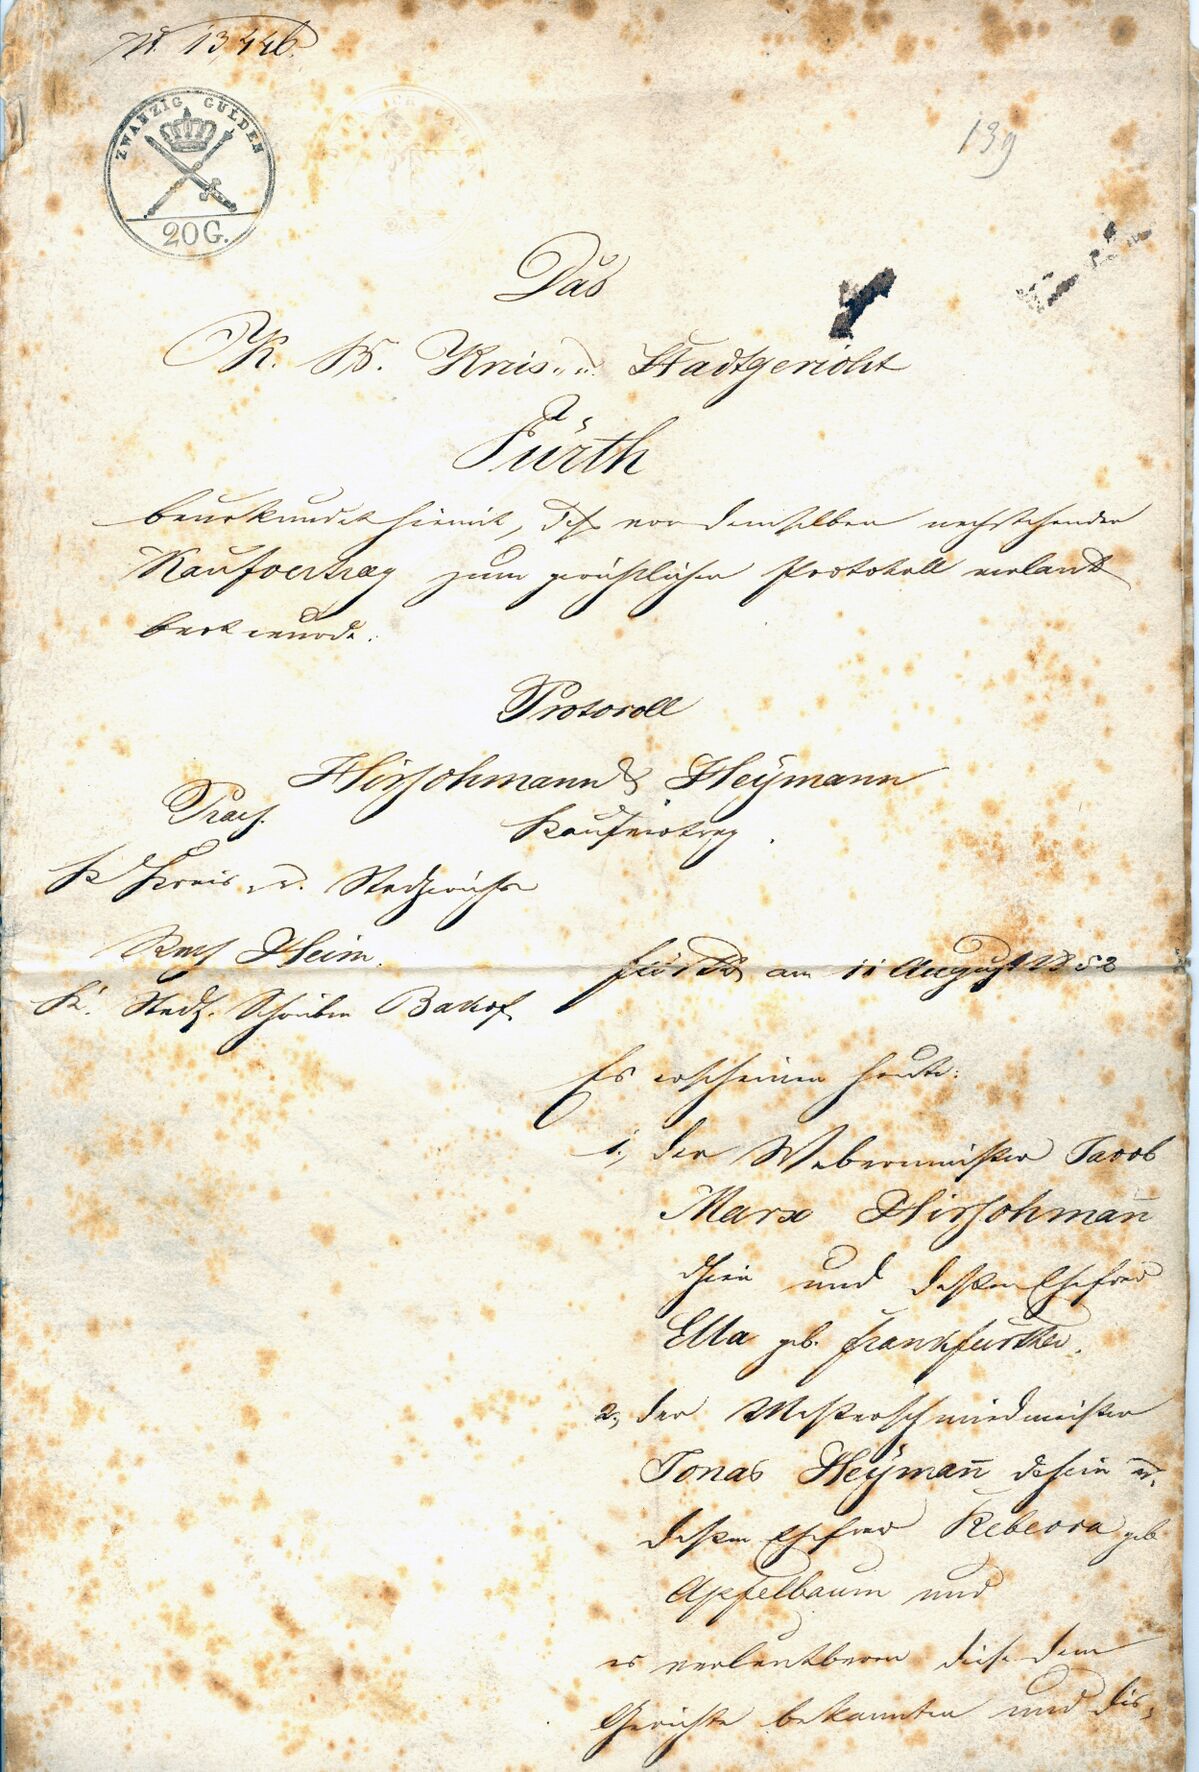 Nr. 13,446.
ZWANZIG GULDEN
20 G.
139
Das
K. B. Kreis- u. Stadtgericht
Fürth
beurkundet hiemit, daß vor demselben nachstehender
Kaufvertrag zum gerichtlichen Protokoll verlaut
bart wurde.
Protocoll
Hirschmann & Heymann
Praes.
Kaufvertrag.
K Kreis u. Stadtgerichts
Rath Heim.
Fürth am 11 August 1852
K. Stadtg. Schreiber Bakof
Es erscheinen heute:
1., der Webermeister Jacob
Marx Hirschmañ
dahier und dessen Ehefrau
Ella geb. Frankfurther.
2., der Messerschmiedmeister
Jonas Heymañ dahier u.
dessen Ehefrau Rebecca geb
Apfelbaum und
es verlautbaren diese dem
Gerichte bekannten und dis-